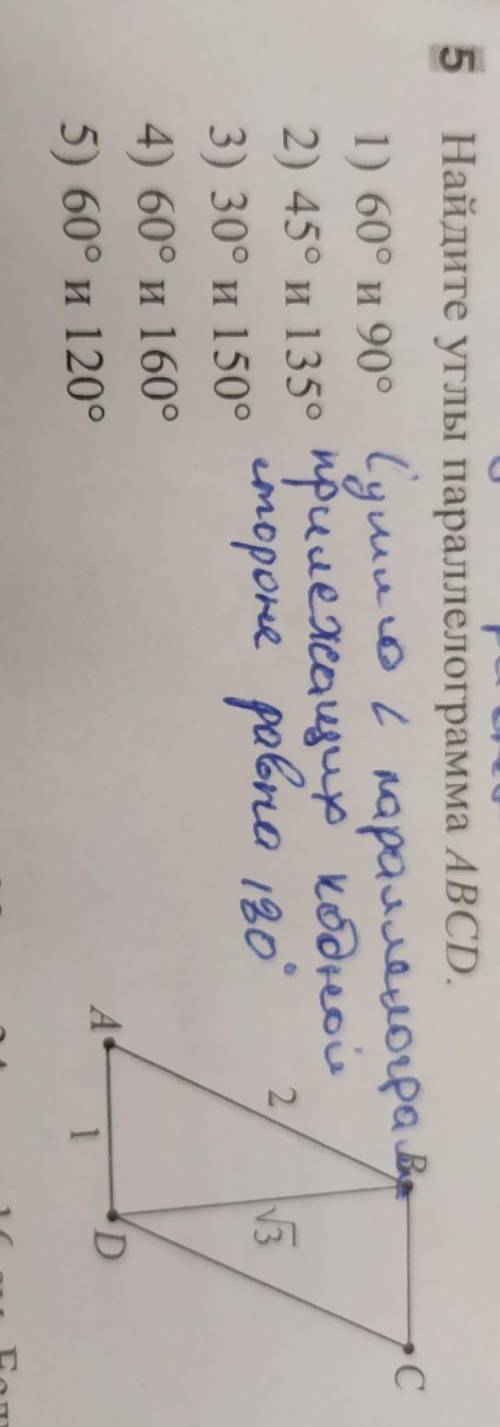 5 Найдите углы параллелограмма ABCD.
1) 60° и 90°
2) 45° и 135°
3) 30° и 150°
4) 60° и 160°
5) 60° и 120°
Сумма ∠ параллелограмм
прилежащих к одной
стороне равна 180°
B
C
2
√3
A
1
D